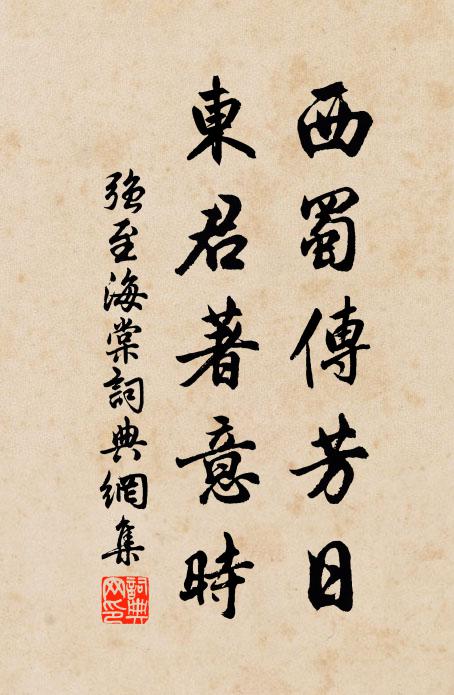 西蜀傳芳日
東君著意時
強至海棠詞典網集
詞典網印